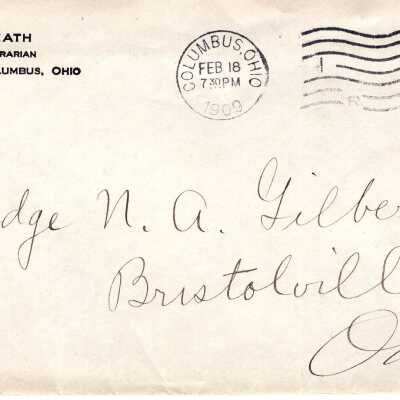 EATH
RARIAN
LUMBUS, OHIO
COLUMBUS, OHIO
FEB 18
7 30 PM
1909
1
R
dge N. A. Gilber
Bristolvill
O